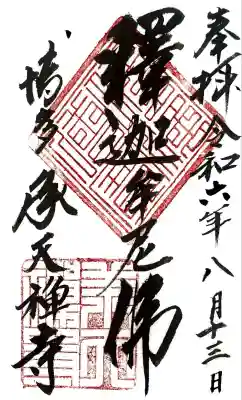 奉拝 令和六年 八月十三日
釋迦牟尼佛
博多 承天禅寺